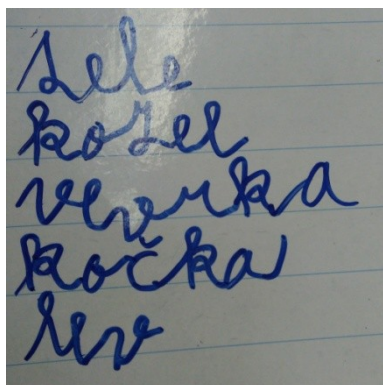 sele
kozel
veverka
kočka
lev